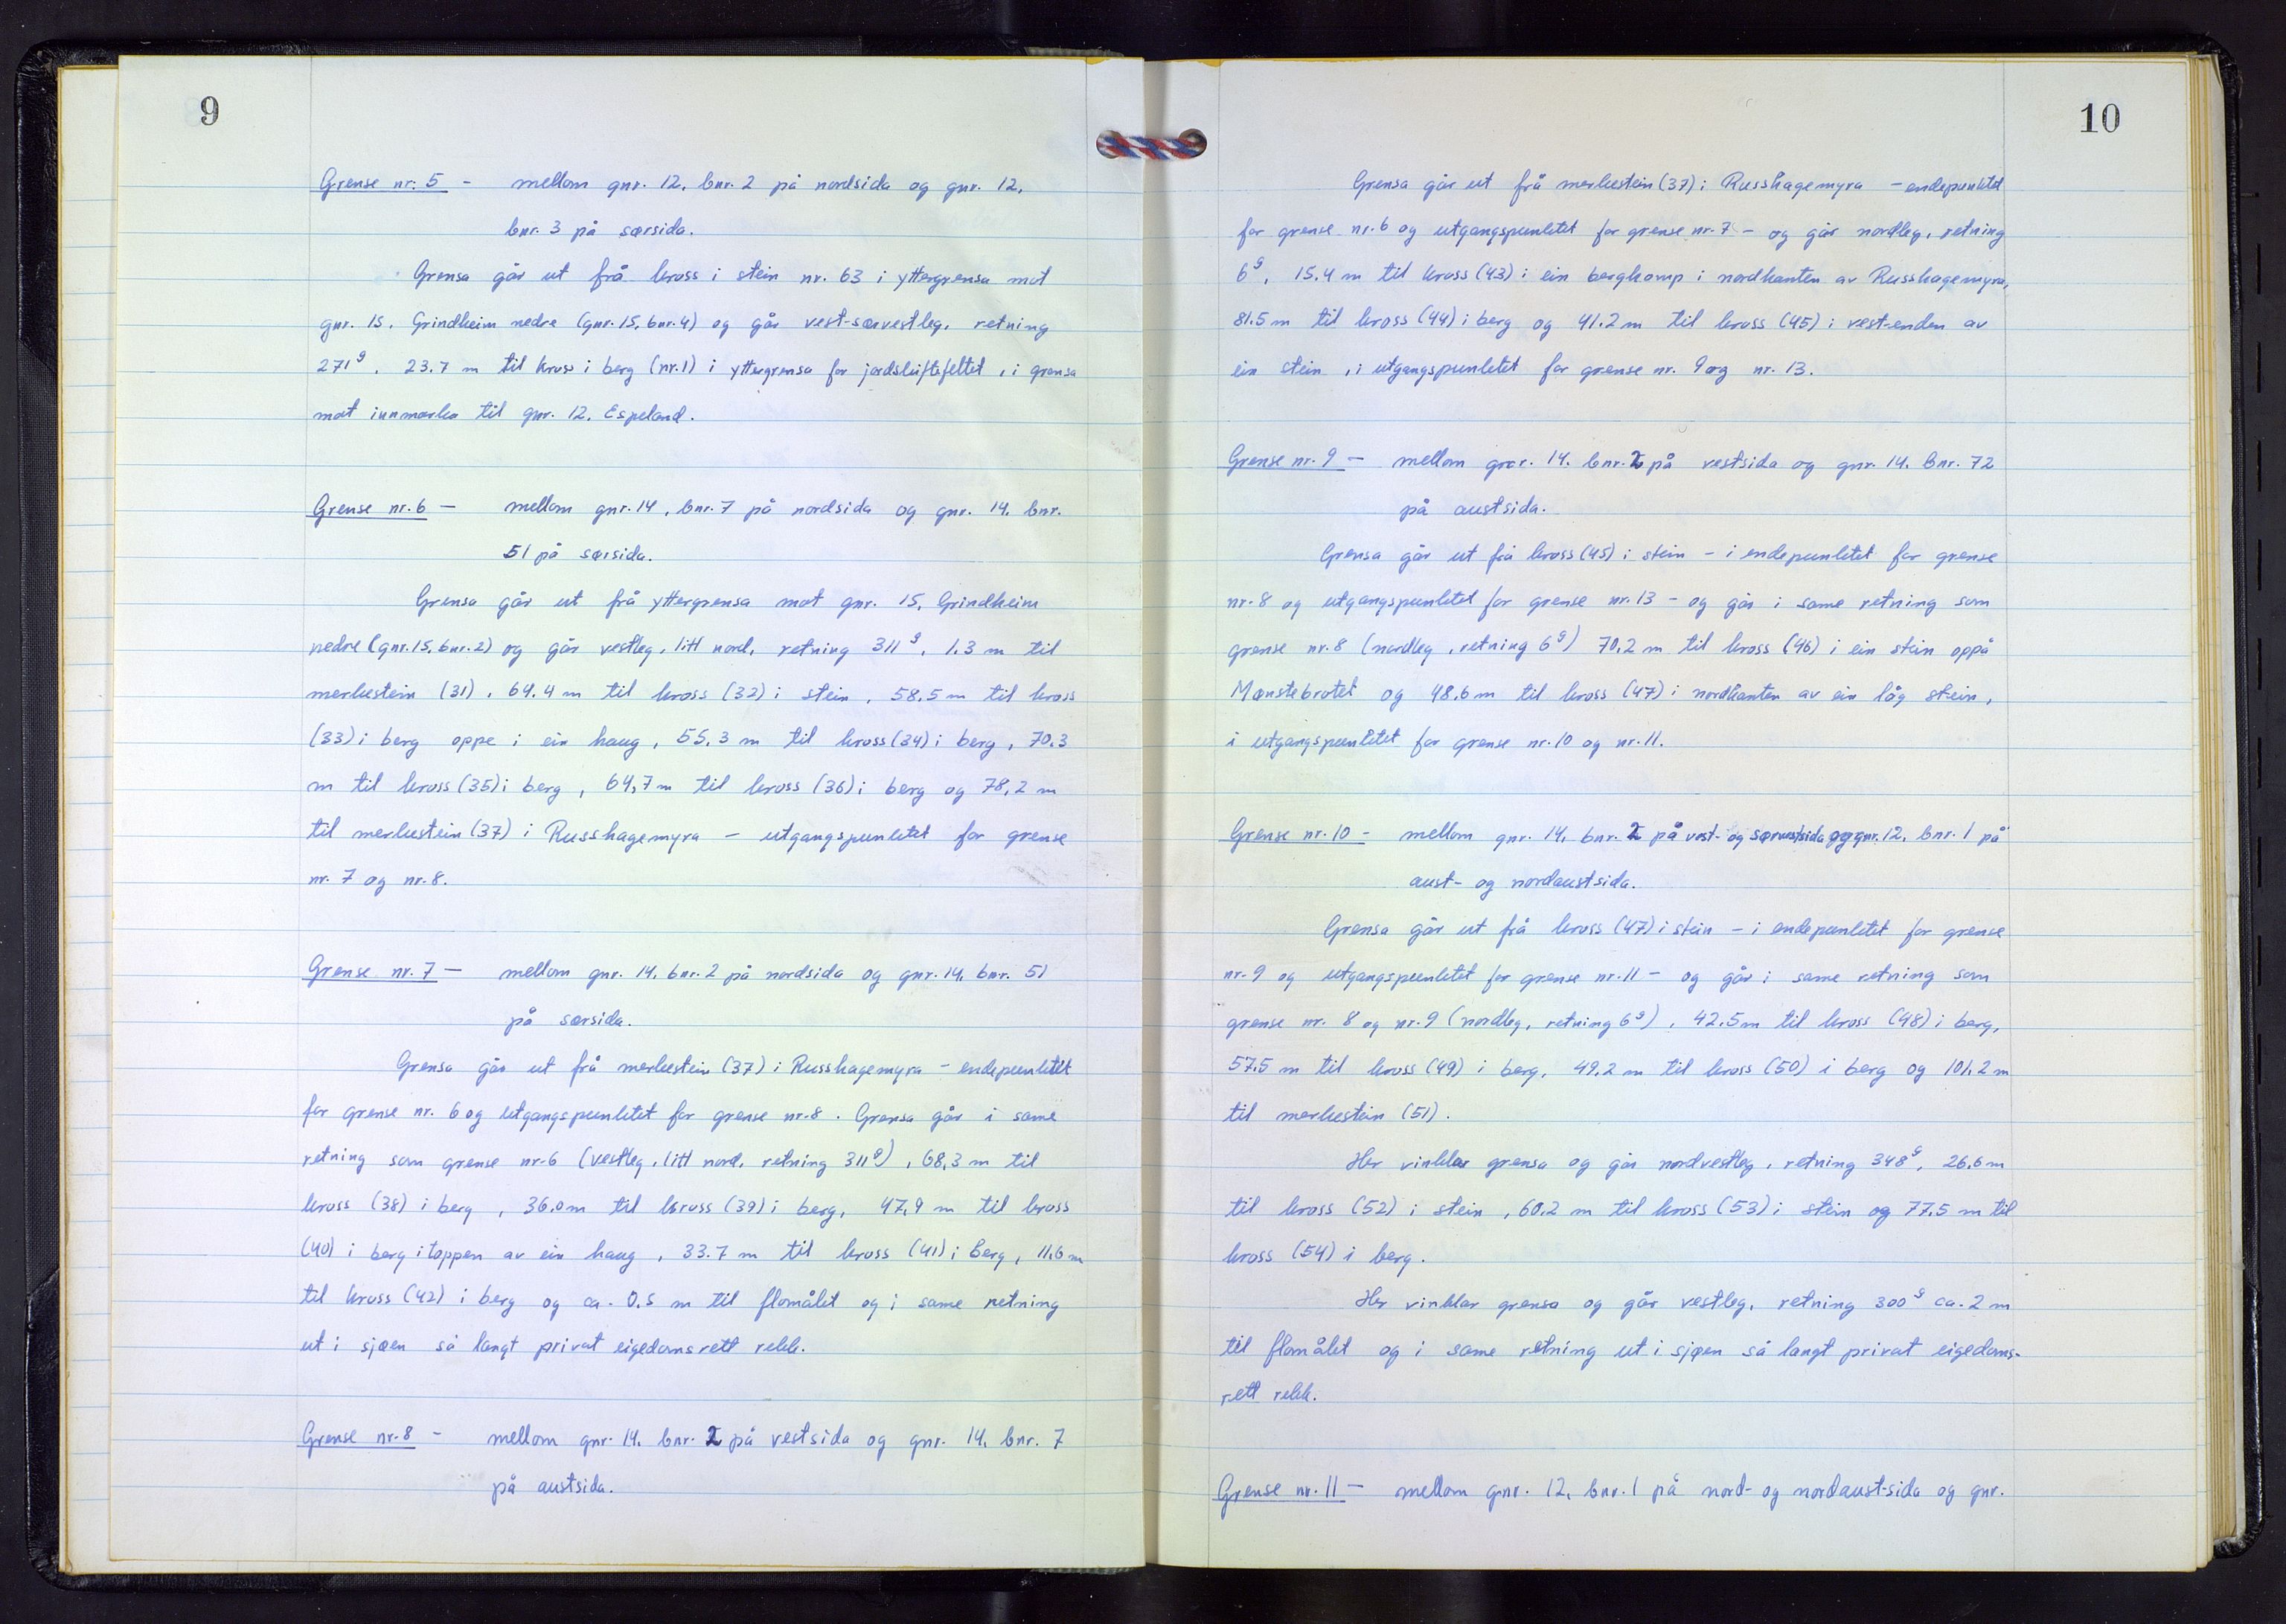 9
Grense nr. 5 - mellom gnr. 12, bnr. 2 på nordsida og gnr. 12,
bnr. 3 på sørsida.
Grensa går ut frå kross i stein nr. 63 i yttergrensa mot
gnr. 15, Grindheim nedre (gnr. 15, bnr. 4) og går vest-sørvestleg, retning
271g, 23.7 m til kross i berg (nr. 1) i yttergrensa for jordskiftefeltet, i grensa
mot innmarka til gnr. 12, Espeland.
Grense nr. 6 - mellom gnr. 14, bnr. 7 på nordsida og gnr. 14, bnr.
51 på sørsida.
Grensa går ut frå yttergrensa mot gnr. 15, Grindheim
nedre (gnr. 15, bnr. 2) og går vestleg, litt nord, retning 311g, 1.3 m til
merkestein (31), 64.4 m til kross (32) i stein, 58.5 m til kross
(33) i berg oppe i ein haug, 55.3 m til kross (34) i berg, 70.3
m til kross (35) i berg, 64,7 m til kross (36) i berg og 78,2 m
til merkestein (37) i Russhagemyra - utgangspunktet for grense
nr. 7 og nr. 8.
Grense nr. 7 - mellom gnr. 14, bnr. 2 på nordsida og gnr. 14, bnr. 51
på sørsida.
Grensa går ut frå merkestein (37) i Russhagemyra - endepunktet
for grense nr. 6 og utgangspunktet for grense nr. 8. Grensa går i same
retning som grense nr. 6 (vestleg, litt nord, retning 311g), 68,3 m til
kross (38) i berg, 36.0 m til kross (39) i berg, 47,9 m til kross
(40) i berg i toppen av ein haug, 33.7 m til kross (41) i berg, 11.6 m
til kross (42) i berg og ca. 0.5 m til flomålet og i same retning
ut i sjøen så langt privat eigedomsrett rekk.
Grense nr. 8 - mellom gnr. 14, bnr. 2 på vestsida og gnr. 14, bnr. 7
på austsida.
10
Grensa går ut frå merkestein (37) i Russhagemyra - endepunktet
for grense nr. 6 og utgangspunktet for grense nr. 7 - og går nordleg, retning
6g, 15.4 m til kross (43) i ein bergkamp i nordkanten av Russhagemyra,
81.5 m til kross (44) i berg og 41.2 m til kross (45) i vest-enden av
ein stein, i utgangspunktet for grense nr. 9 og nr. 13.
Grense nr. 9 - mellom gnr. 14, bnr. 2 på vestsida og gnr. 14, bnr. 72
på austsida.
Grensa går ut frå kross (45) i stein - i endepunktet for grense
nr. 8 og utgangspunktet for grense nr. 13 - og går i same retning som
grense nr. 8 (nordleg, retning 6g) 70.2 m til kross (46) i ein stein oppå
Mønstebrotet og 48.6 m til kross (47) i nordkanten av ein låg stein,
i utgangspunktet for grense nr. 10 og nr. 11.
Grense nr. 10 - mellom gnr. 14, bnr. 2 på vest- og sørvestsida og gnr. 12, bnr. 1 på
aust- og nordaustsida.
Grensa går ut frå kross (47) i stein - i endepunktet for grense
nr. 9 og utgangspunktet for grense nr. 11 - og går i same retning som
grense nr. 8 og nr. 9 (nordleg, retning 6g), 42.5 m til kross (48) i berg,
57.5 m til kross (49) i berg, 49.2 m til kross (50) i berg og 101.2 m
til merkestein (51).
Her vinklar grensa og går nordvestleg, retning 348g, 26.6 m
til kross (52) i stein, 60.2 m til kross (53) i stein og 77.5 m til
kross (54) i berg.
Her vinklar grensa og går vestleg, retning 300g ca. 2 m
til flomålet og i same retning ut i sjøen så langt privat eigedoms-
rett rekk.
Grense nr. 11 - mellom gnr. 12, bnr. 1 på nord- og nordaust-sida og gnr.